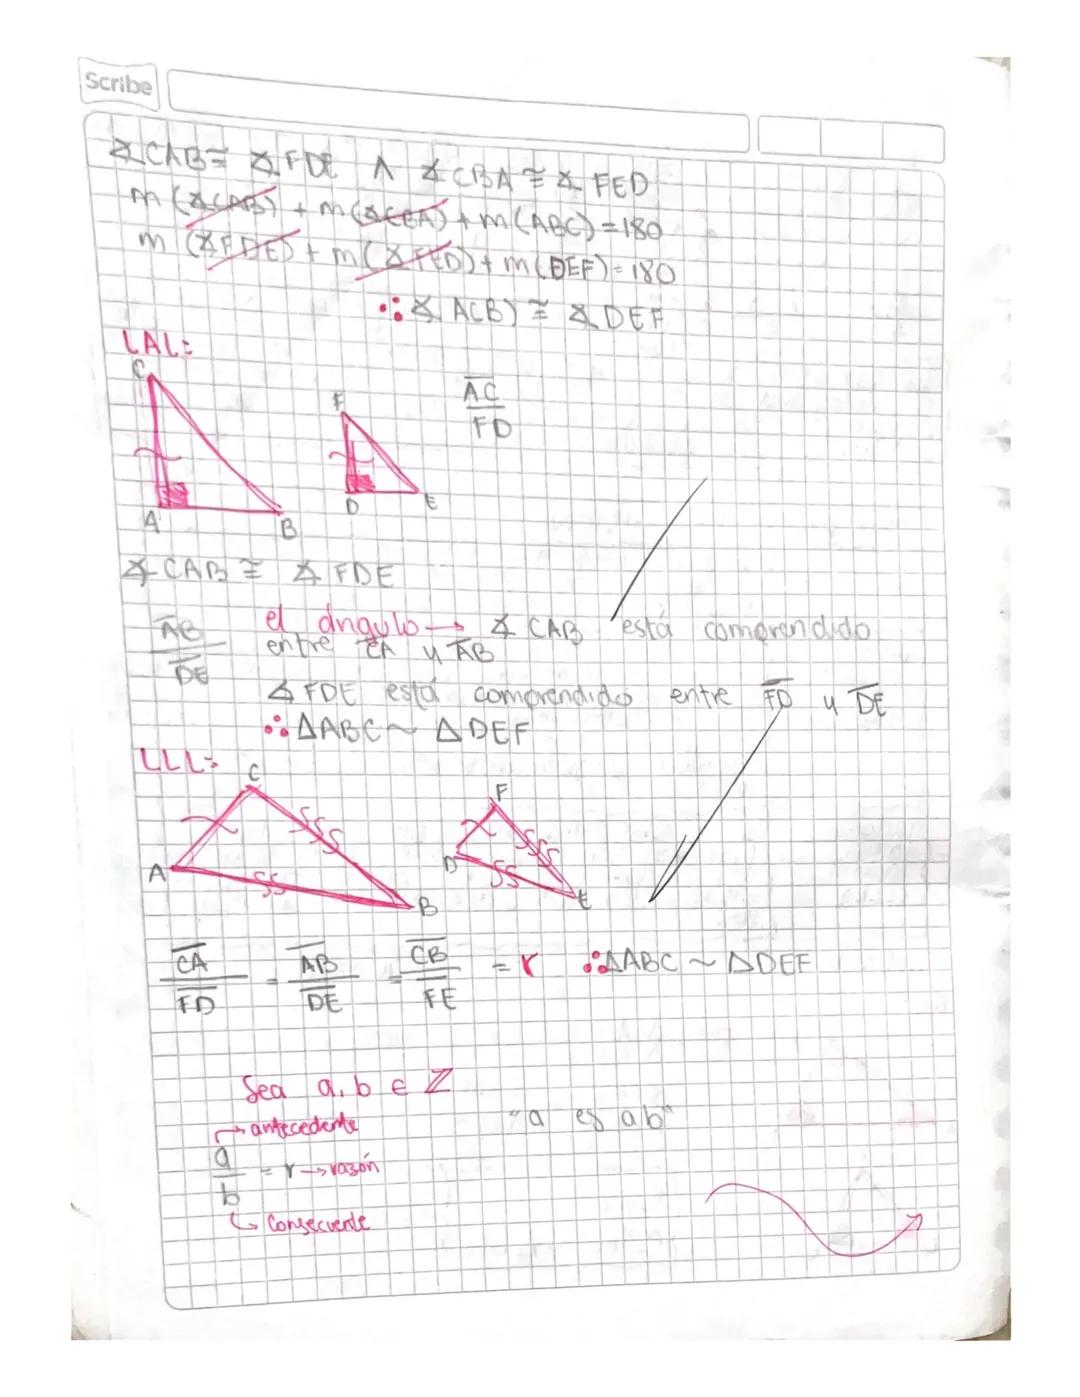 Scribe
∡CAB≅ ∡FDE ∧ ∡CBA ≅ ∡ FED
m (∡CAB) + m(∡CBA) + m(ABC)=180
m (∡FDE) + m(∡FED) + m(DEF)=180
∴ ∡ ACB) ≅ ∡ DEF
LAL:
C
F
AC
FD
A
B
D
E
∡ CAB ≅ ∡ FDE
AB
DE
el ángulo → ∡ CAB está comprendido
entre CA y AB
∡ FDE está comprendido entre FD y DE
∴ ΔABC ~ ΔDEF
LLL:
C
F
A
B
D
E
CA/FD = AB/DE = CB/FE = r ∴ΔABC ~ ΔDEF
Sea a, b ∈ ℤ
→ antecedente
"a es a b"
a/b = r → razón
↳ Consecuente